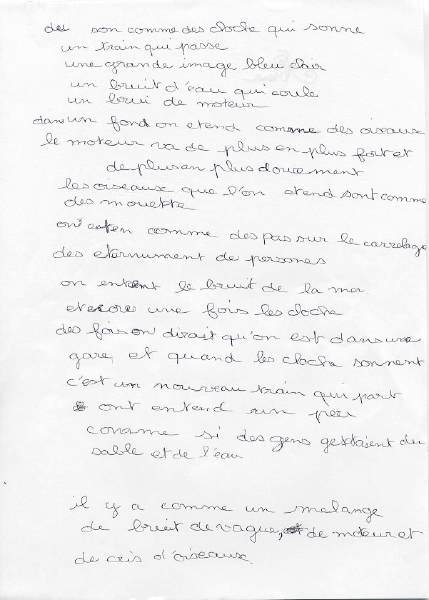 des son comme des cloche qui sonne
un train qui passe
une grande image bleu clair
un bruit d'eau qui coule
un brui de moteur
dans un fond on etend comme des oiseaux
le moteur va de plus en plus fort et
de plus en plus doucement
les oiseaux que l'on etend sont comme
des mouette
on enten comme des pas sur le carrelage
des eternument de persones
on entent le bruit de la mer
et encore une fois les cloche
des fois on dirait qu'on est dans une
gare, et quand les cloche sonnent
c'est un nouveau train qui part
ont entend un peu
comme si des gens gettaient du
sable et de l'eau
il y a comme un malange
de bruit de vague, de moteur et
de cris d'oiseaux.